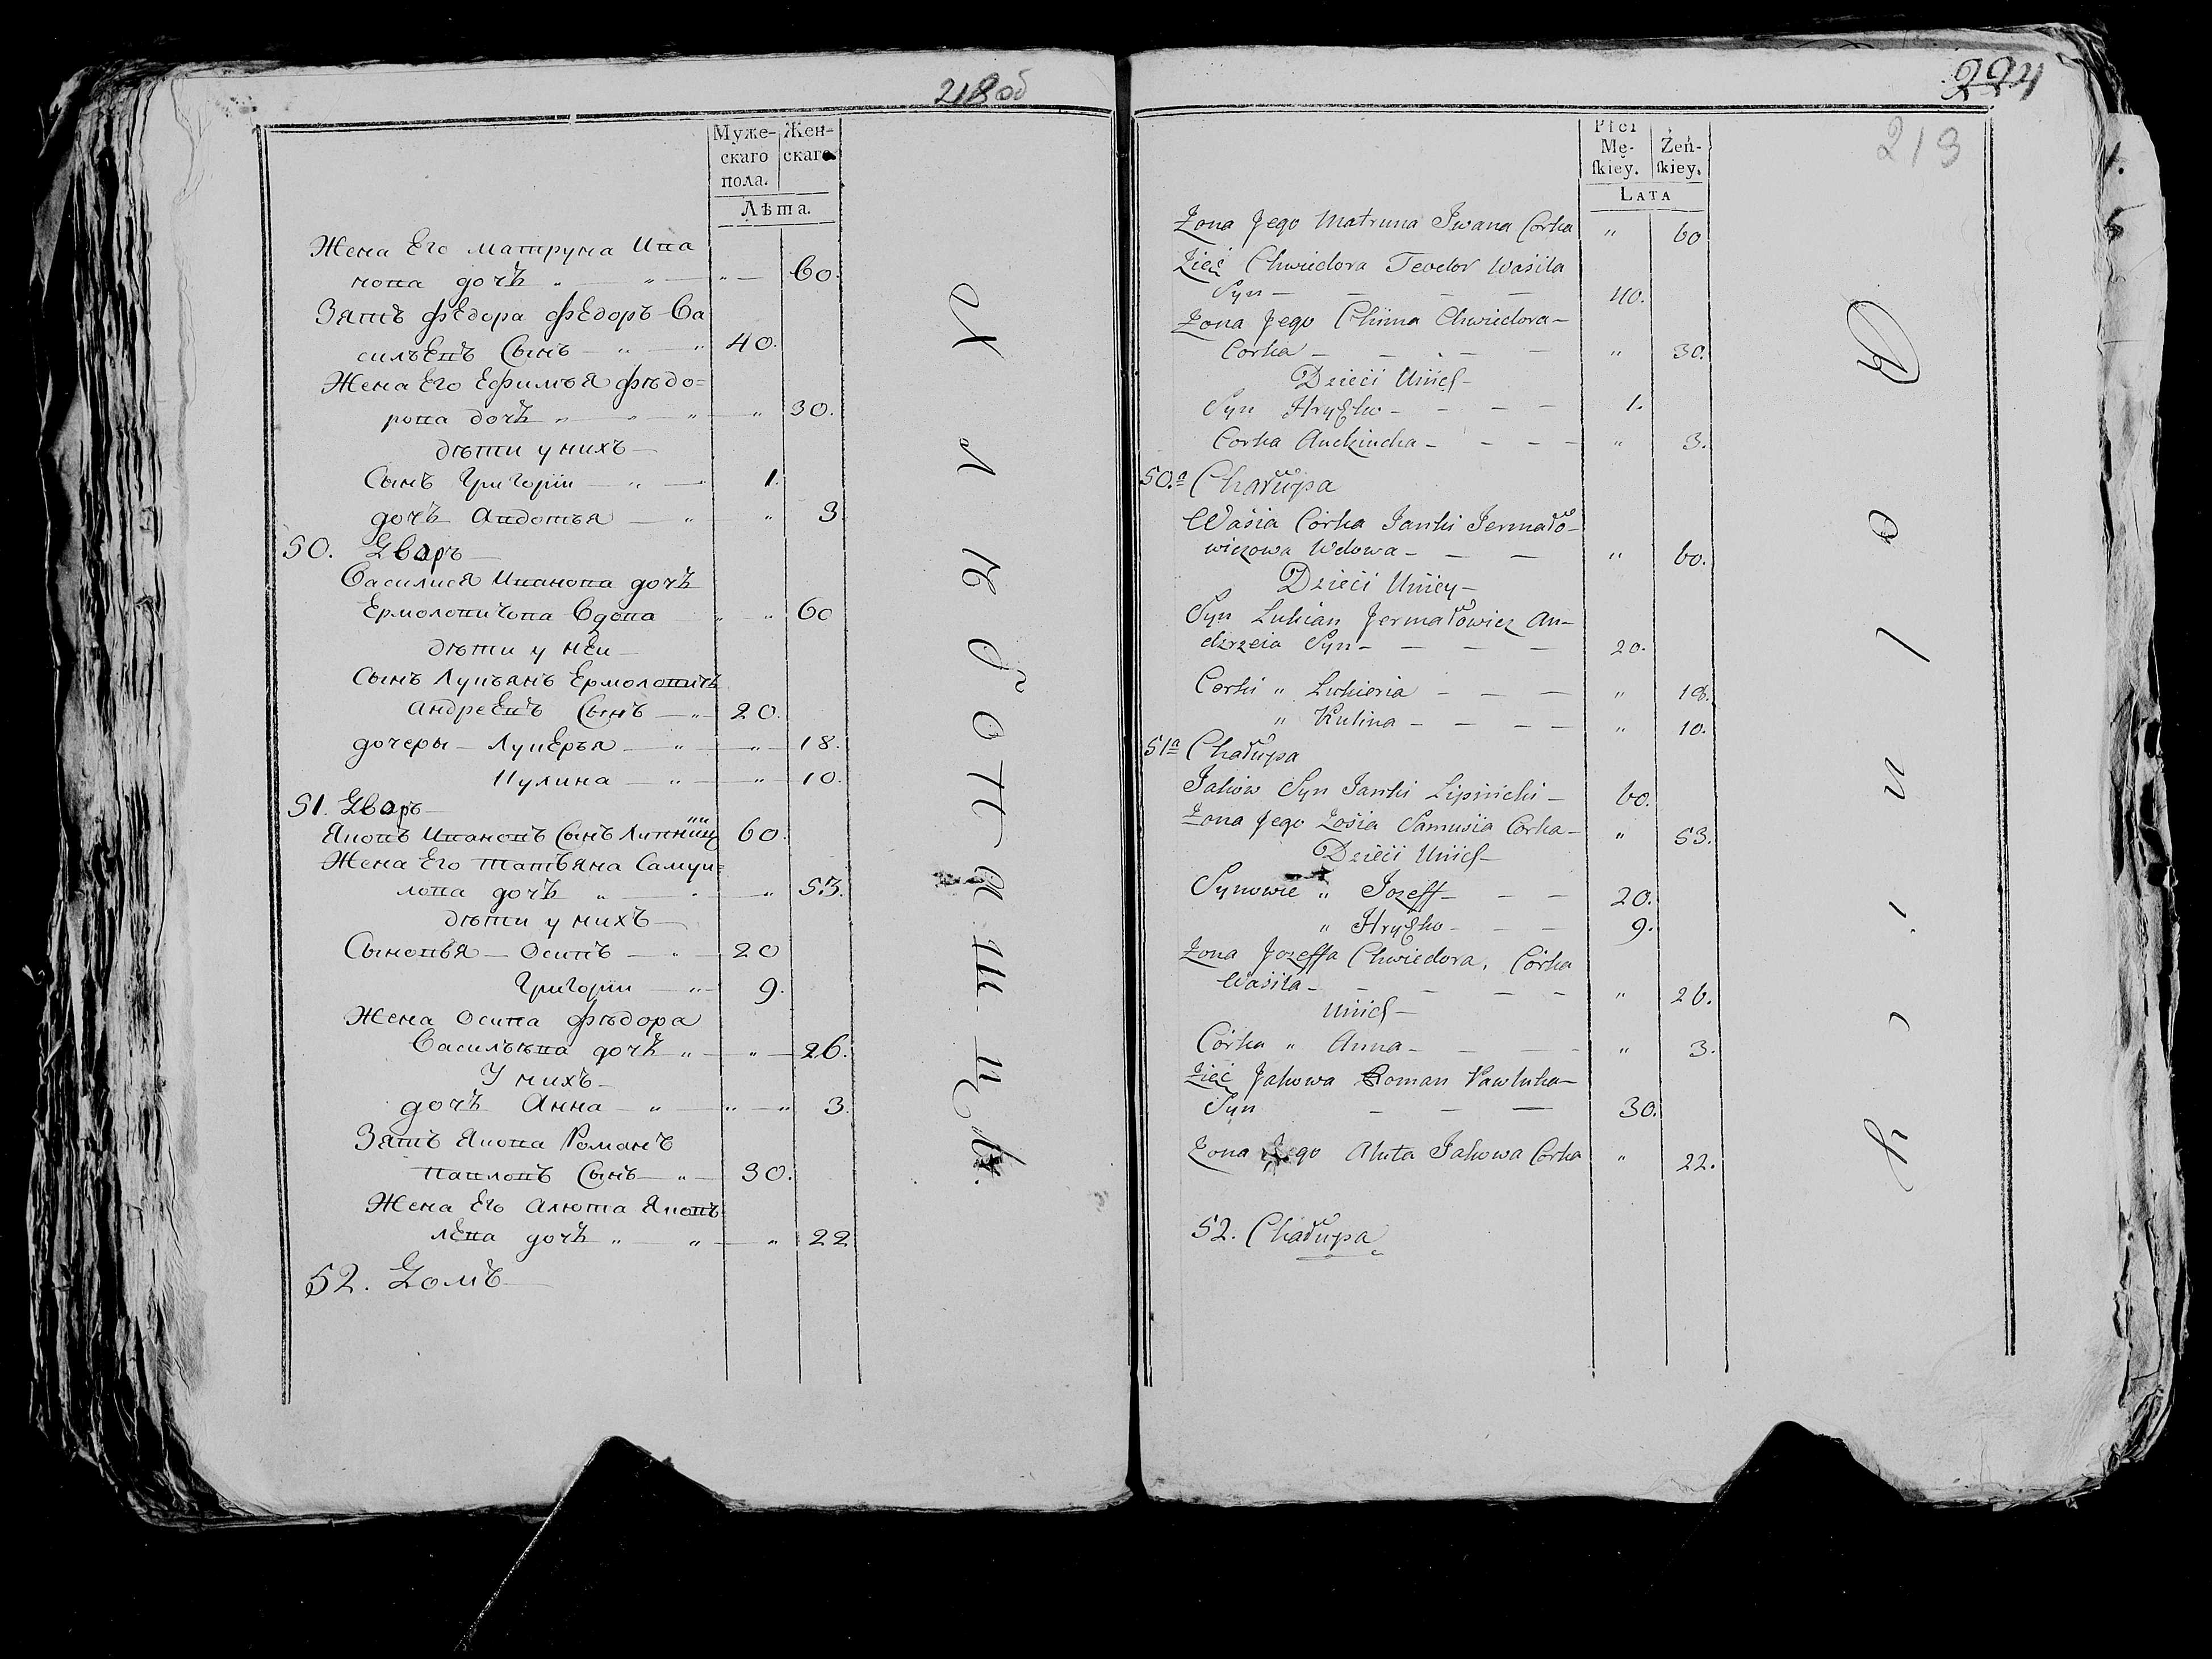 218 об
Муже-
скаго
пола.
Жен-
скаго
Лѣта.
Жена Его матруна Ива
нова дочь 60.
Зять фЕдора фЕдоръ Ва
сильЕвъ Сынъ 40.
Жена Его Ефимья фѣдо=
рова дочь 30.
дѣти у нихъ
Сынъ Григории 1.
дочь Авдотья 3
50. Дворъ
Василиса Иванова дочь
Ермоловичова Вдова 60
дѣти у нЕи
Сынъ Лукъянъ Ермоловичъ
АндреЕвъ Сынъ 20.
дочеры Лукерья 18.
Кулина 10.
51. Дворъ
Яковъ Ивановъ Сынъ Липницкии 60.
Жена Его татьяна Самуи=
лова дочь 53.
дѣти у нихъ
Сыновья Осипъ 20
Григории 9.
Жена Осипа фѣдора
Васильѣва дочь 26.
У нихъ
дочь Анна 3.
Зять Якова Романъ
Павловъ Сынъ 30.
Жена Его Алюта Яковъ
лЕва дочь 22
52. Домъ
224
219
Płci
Mę-
skiey.
Żeń-
skiey.
LATA
Żona Jego Matruna Iwana Corka " 60
Zięć Chwiedora Teodor Wasila
Syn 40.
Żona Jego Chima Chwiedora
Corka " 30.
Dzieci Unich
Syn Hryćko 1.
Corka Auckincha " 3.
50.a Chałupa
Wasia Córka Janki Jermało-
wiczowa Wdowa " 60.
Dzieci Uniey
Syn Lukian Jermałowicz An-
drzeia Syn 20.
Corki " Lukieria " 18.
" Kulina " 10.
51a Chałupa
Jakow Syn Janki Lipnicki 60.
Żona Jego Zosia Samusia Corka " 53.
Dzieci Unich
Synowie " Jozeff 20.
" Hryćko 9.
Żona Jozeffa Chwiedora, Córka
Wasila " 26.
Unich
Córka " Anna " 3.
Zięć Jakowa Roman Pawluka
Syn 30.
Żona Jego Aluta Jakowa Corka " 22.
52. Chałupa